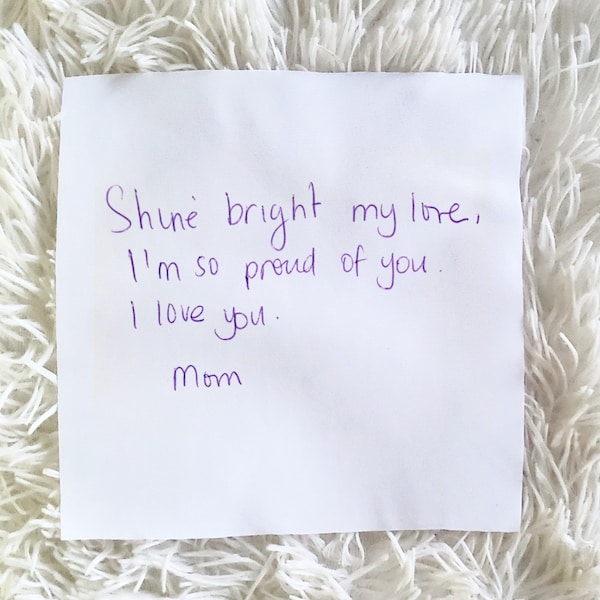 Shine bright my love,
I'm so proud of you.
I love you.
Mom